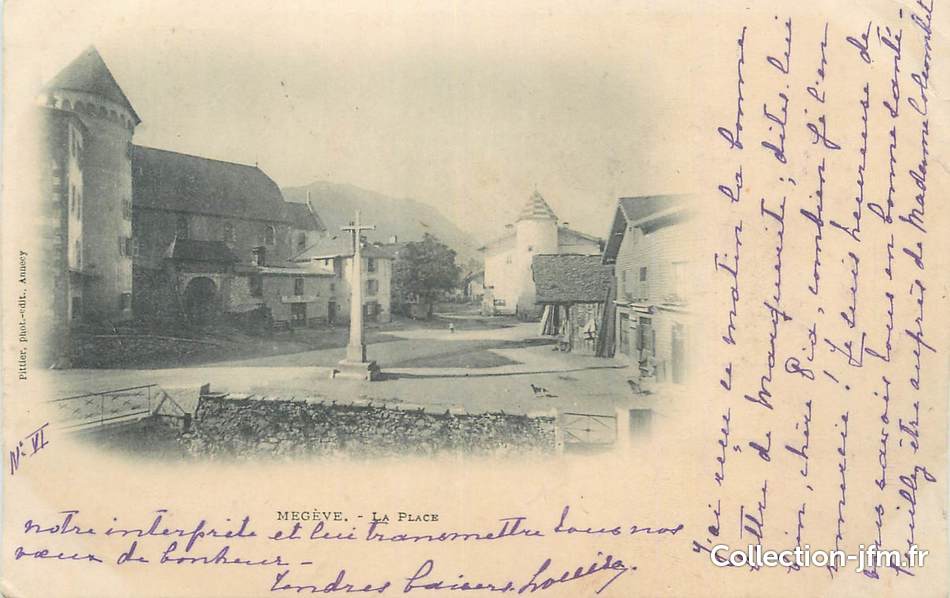 Pittier, phot.-édit., Annecy
No VI
MEGÈVE. - LA PLACE
J'ai reçu ce matin la bonne
lettre de Marguerite ; dites-lui
bien, chère Pia, combien je l'en
remercie ! Je suis heureuse de
vous savoir tous en bonne santé -
Veuillez être auprès de Madame
notre interprète et lui transmettre tous nos
vœux de bonheur -
Tendres baisers. Louisa.
Collection-jfm.fr